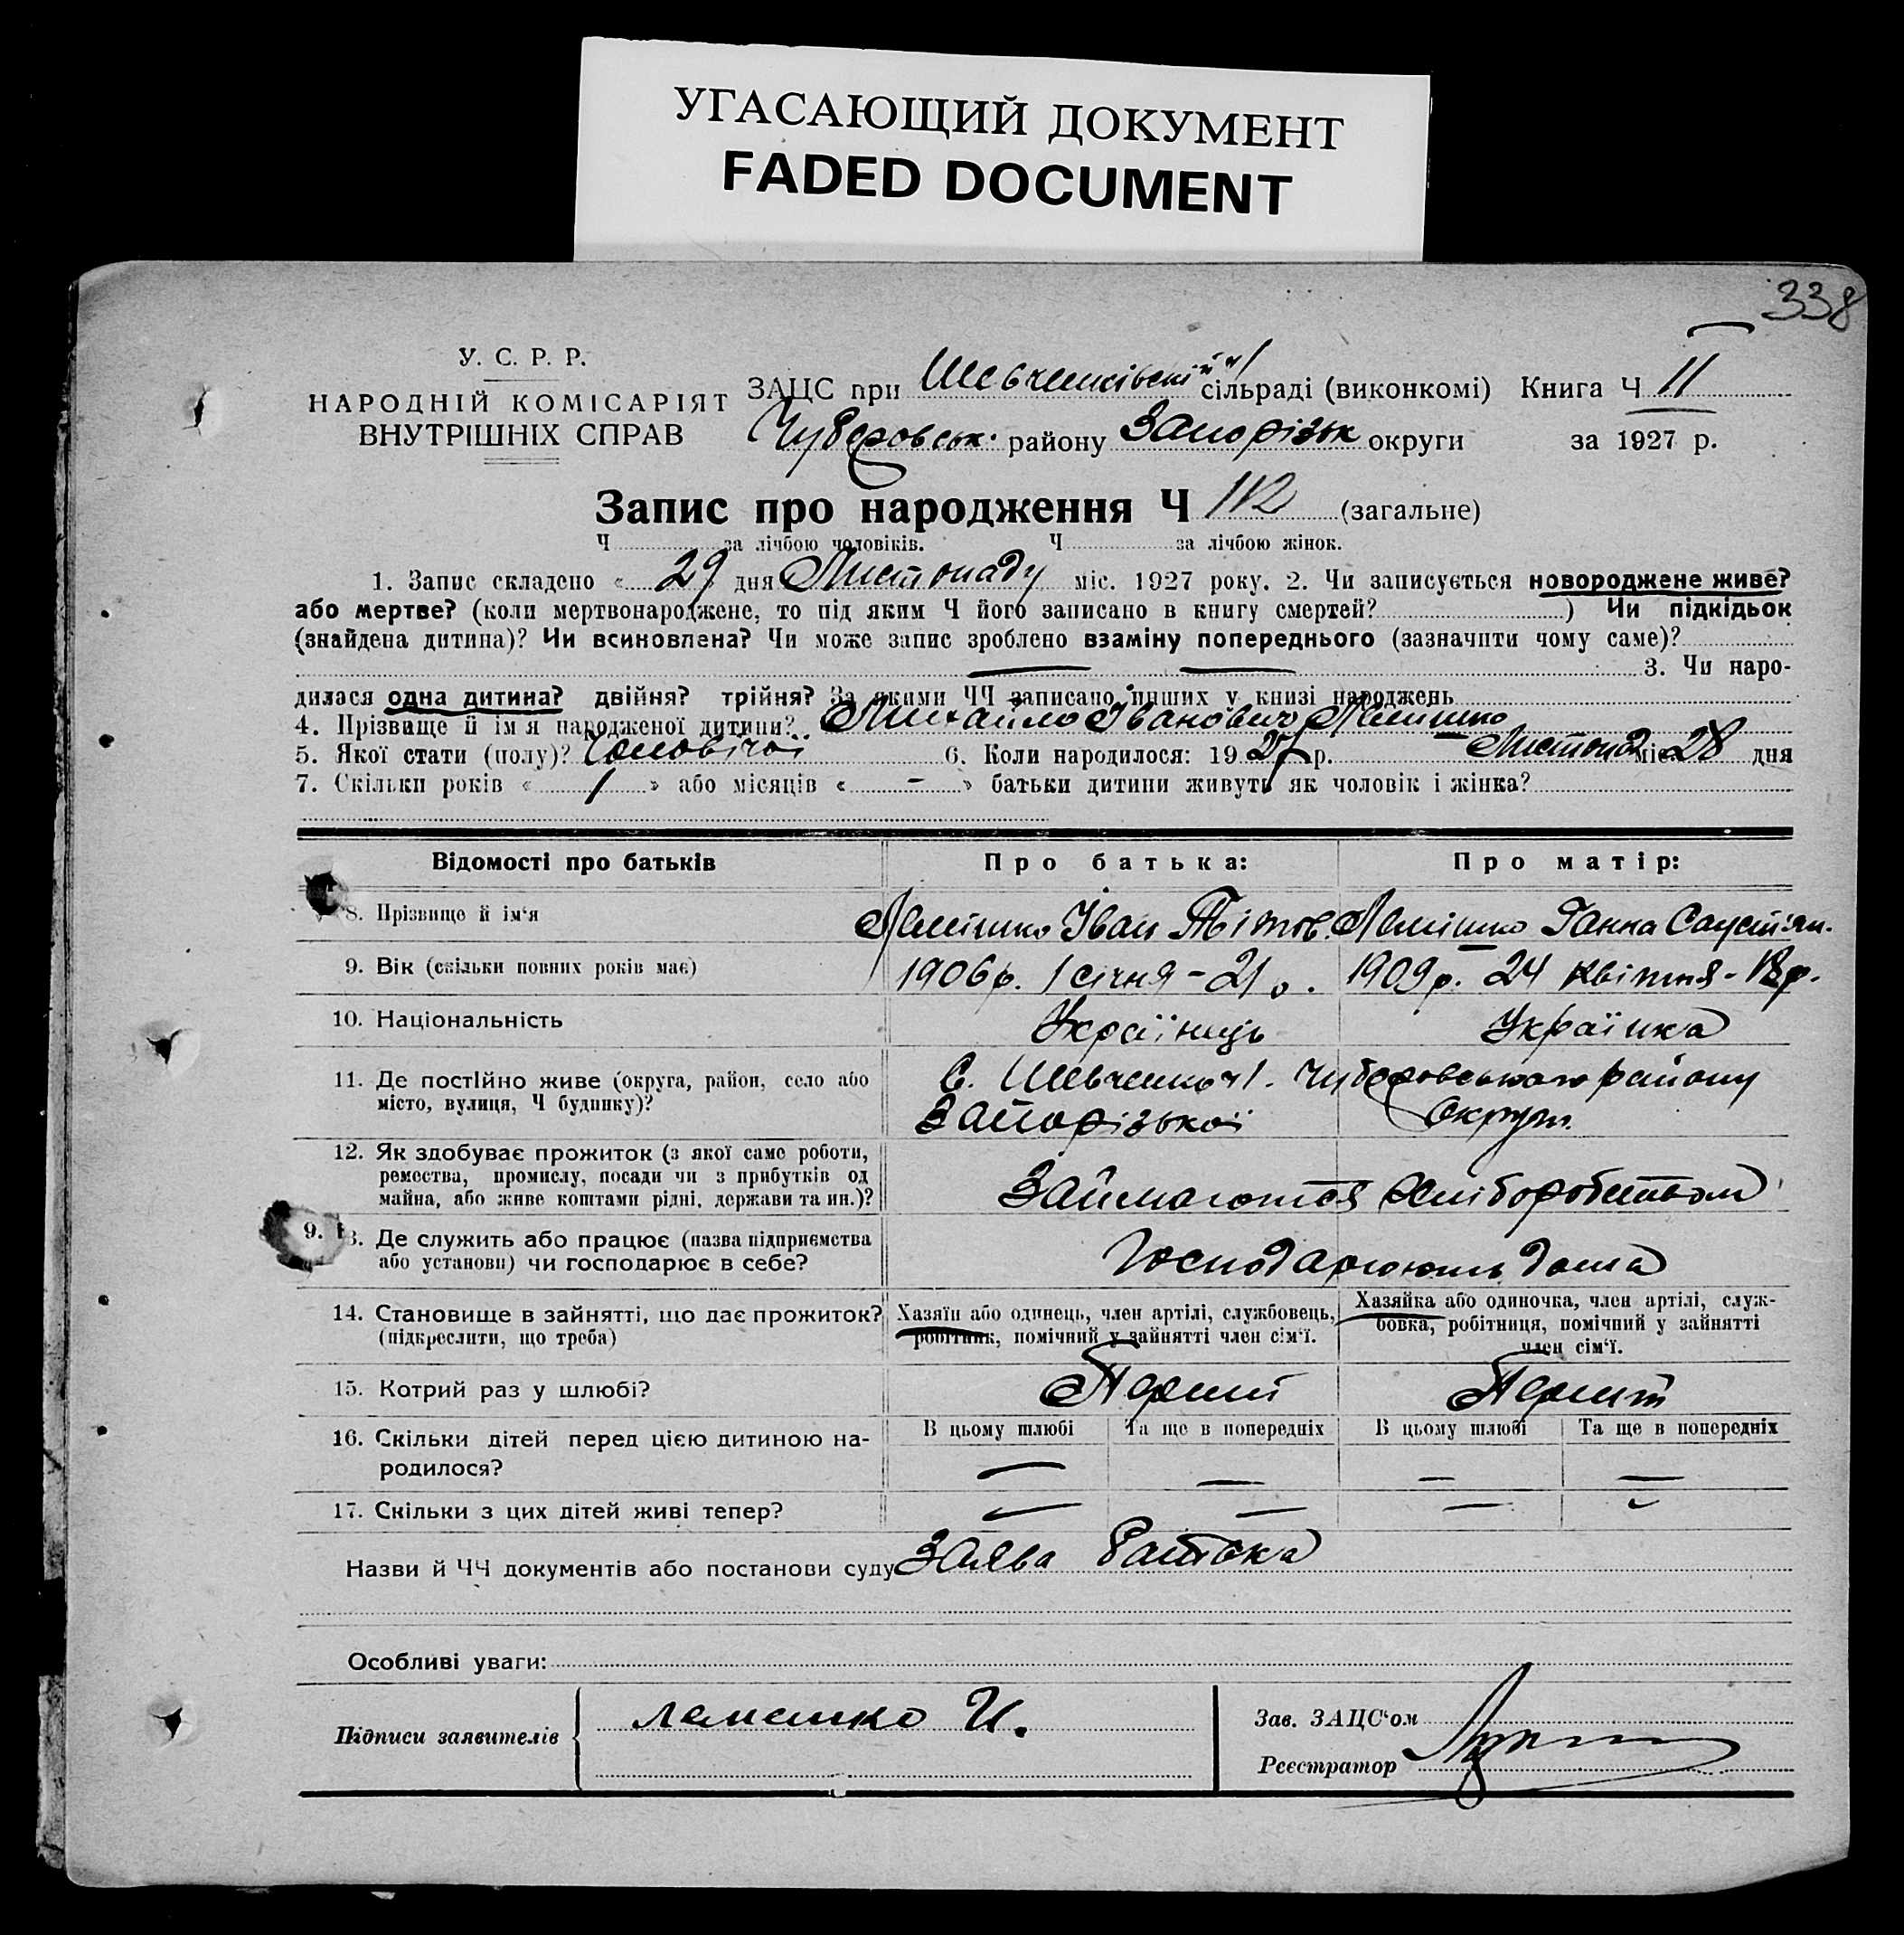 УГАСАЮЩИЙ ДОКУМЕНТ
FADED DOCUMENT
338
У. С. Р. Р.
НАРОДНІЙ КОМІСАРІЯТ
ВНУТРІШНІХ СПРАВ
ЗАЦС при Шевченківській ч 1 сільраді (виконкомі) Книга Ч 11
Чубаровськ. району Запорізьк округи за 1927 р.
Запис про народження Ч 112 (загальне)
Ч за лічбою чоловіків. Ч за лічбою жінок.
1. Запис складено « 29 » дня Листопаду міс. 1927 року. 2. Чи записується новороджене живе?
або мертве? (коли мертвонароджене, то під яким Ч його записано в книгу смертей? ) Чи підкідьок
(знайдена дитина)? Чи всиновлена? Чи може запис зроблено взаміну попереднього (зазначити чому саме)?
3. Чи наро-
дилася одна дитина? двійня? трійня? За якими ЧЧ записано инших у книзі народжень
4. Прізвище й ім'я народженої дитини? Михайло Іванович Лемішко
5. Якої стати (полу)? Чоловічої 6. Коли народилося: 1927 р. Листопад міс. 28 дня
7. Скільки років « 1 » або місяців « - » батьки дитини живуть як чоловік і жінка?
Відомості про батьків Про батька: Про матір:
8. Прізвище й ім'я Лемішко Іван Тітов. Лемішко Ганна Саустіян.
9. Вік (скільки повних років має) 1906 р. 1 січня - 21 р. 1909 р. 24 квітня - 18 р.
10. Національність Українець Українка
11. Де постійно живе (округа, район, село або
місто, вулиця, Ч будинку)?
С. Шевченко ч 1. Чубаровського району
Запорізької округи.
12. Як здобуває прожиток (з якої само роботи,
ремества, промислу, посади чи з прибутків од
майна, або живе коштами рідні, держави та ин.)?
Займаються хліборобством
9.
13. Де служить або працює (назва підприємства
або установи) чи господарює в себе?
Господарюють дома
14. Становище в зайнятті, що дає прожиток?
(підкреслити, що треба)
Хазяїн або одинець, член артілі, службовець,
робітник, помічний у зайнятті член сім'ї.
Хазяйка або одиночка, член артілі, служ-
бовка, робітниця, помічний у зайнятті
член сім'ї.
15. Котрий раз у шлюбі? Перший Перший
16. Скільки дітей перед цією дитиною на-
родилося?
В цьому шлюбі Та ще в попередніх В цьому шлюбі Та ще в попередніх
17. Скільки з цих дітей живі тепер?
Назви й ЧЧ документів або постанови суду Заява батька
Особливі уваги:
Підписи заявителів Лемешко И.
Зав. ЗАЦС'ом
Реєстратор